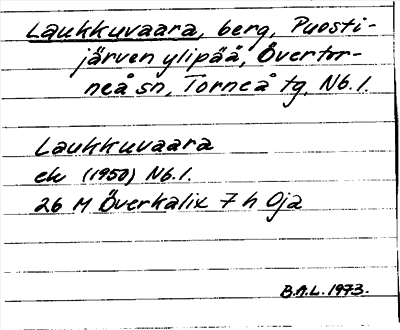 Laukkuvaara, berg, Puosti-
järven ylipää, Övertor-
neå sn, Torneå tg, Nb.l.
Laukkuvaara
ek (1950) Nb.l.
26 M Överkalix 7 h Oja
B.A.L. 1973.